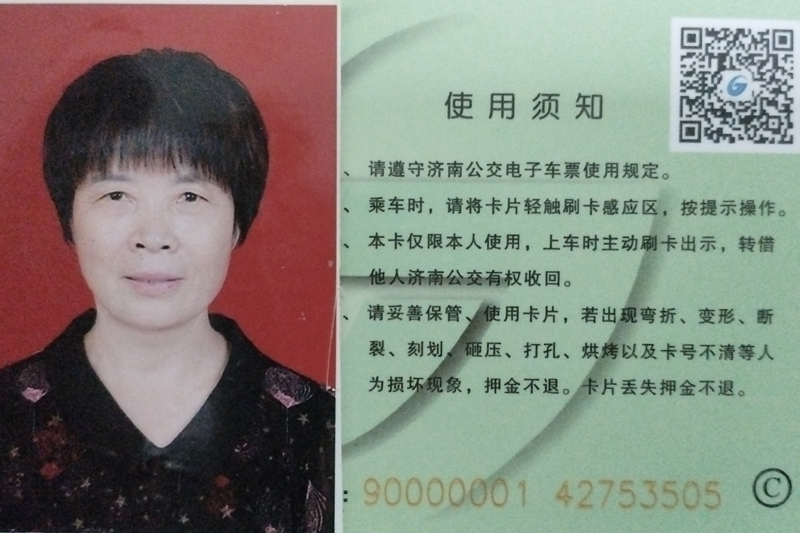 使用须知
、请遵守济南公交电子车票使用规定。
、乘车时，请将卡片轻触刷卡感应区，按提示操作。
、本卡仅限本人使用，上车时主动刷卡出示，转借
他人济南公交有权收回。
、请妥善保管、使用卡片，若出现弯折、变形、断
裂、刻划、砸压、打孔、烘烤以及卡号不清等人
为损坏现象，押金不退。卡片丢失押金不退。
: 90000001 42753505 Ⓒ